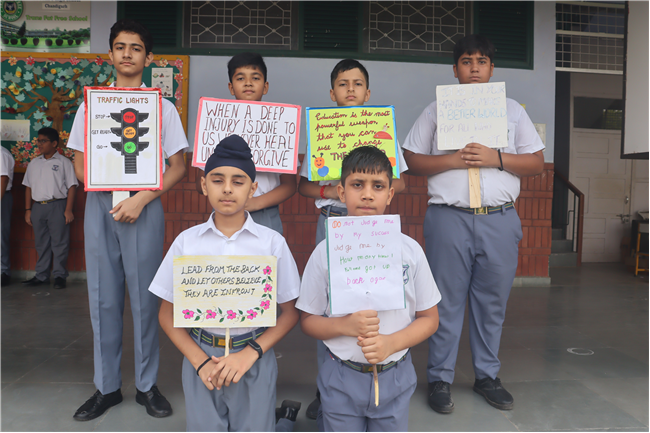 Chandigarh
Trans Fat Free School
TRAFFIC LIGHTS
STOP
GET READY
GO
WHEN A DEEP
INJURY IS DONE TO
US WE NEVER HEAL
UNTIL WE FORGIVE
Education is the most
powerful weapon
that you can
use to change
THE
BETTER WORLD
FOR
LEAD FROM THE BACK
AND LET OTHERS BELIEVE
THEY ARE IN FRONT
DO not Judge me
by my
Judge me by
How many times I
got
Back again